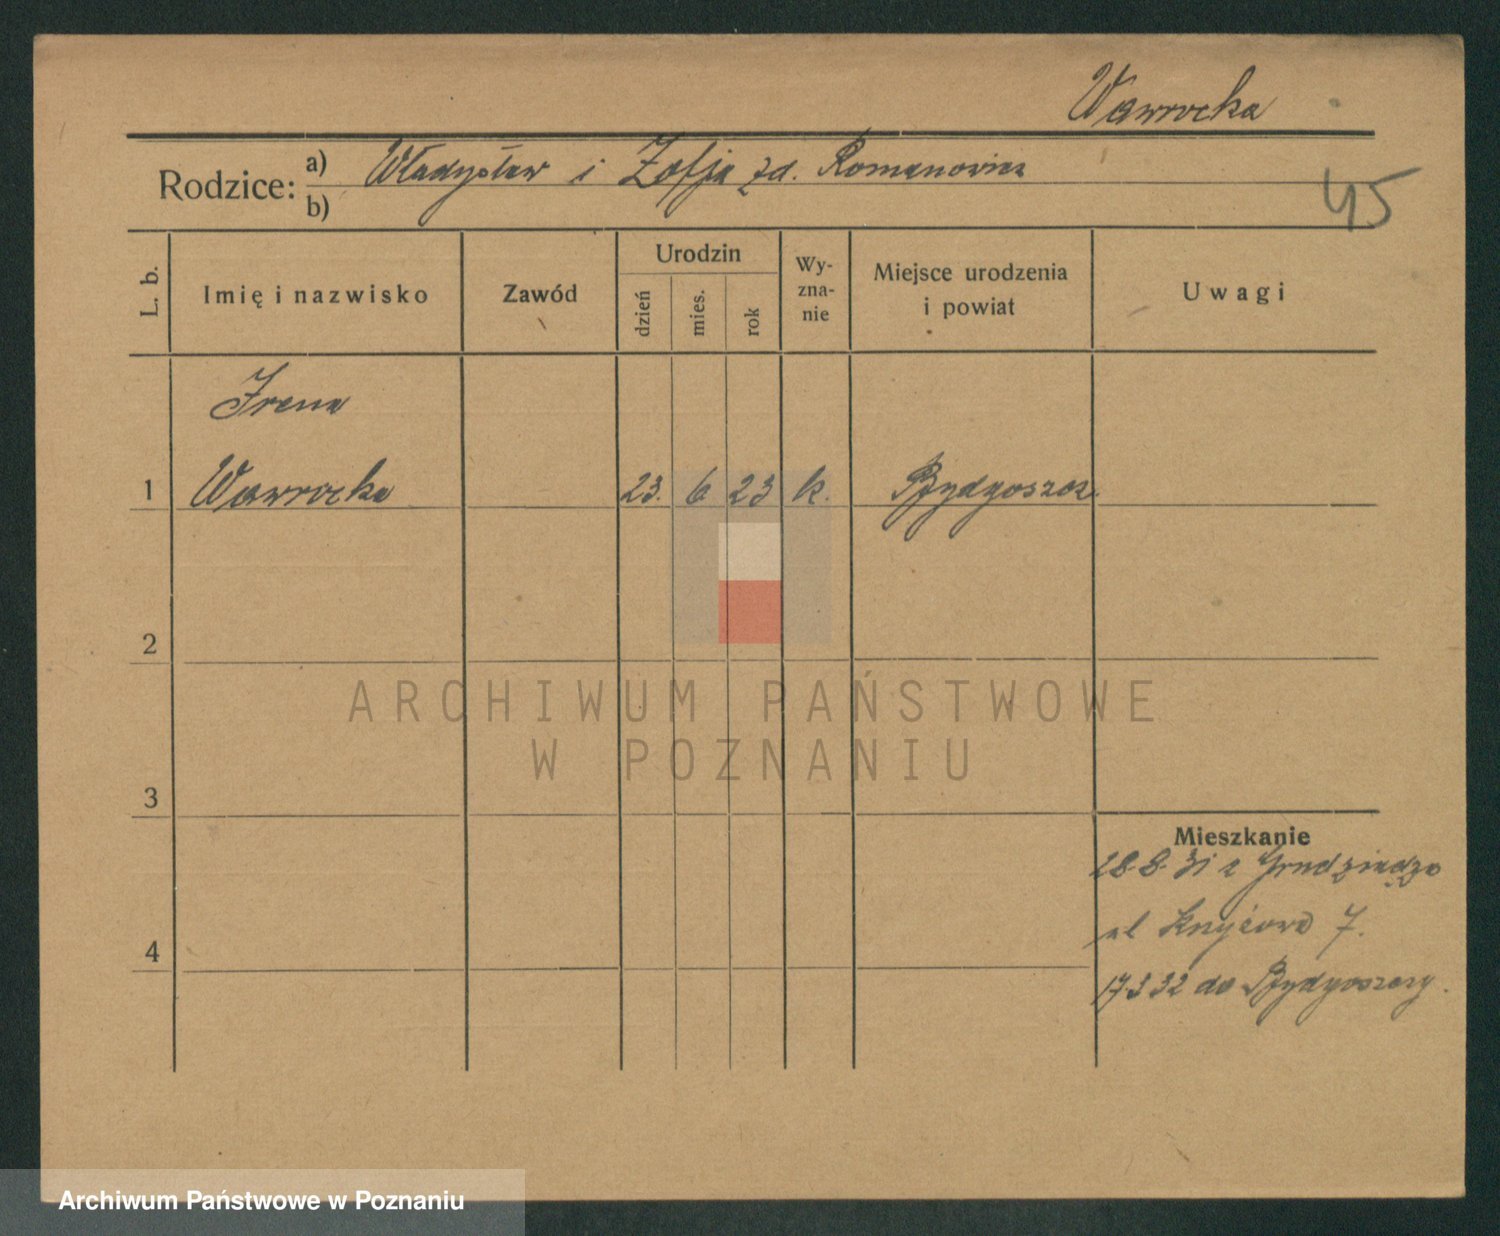 Wawrocka
Rodzice: a) Władysław i Zofja zd. Romanowicz
b)
45
L. b. Imię i nazwisko Zawód Urodzin dzień mies. rok Wy-zna-nie Miejsce urodzenia i powiat Uwagi
Irena
1 Wawrocka 23. 6 23 k. Bydgoszcz
2
ARCHIWUM PAŃSTWOWE
W POZNANIU
3
Mieszkanie
28.8.31 z Grudziądza
ul 7.
4
17 3 32 do Bydgoszczy.
Archiwum Państwowe w Poznaniu